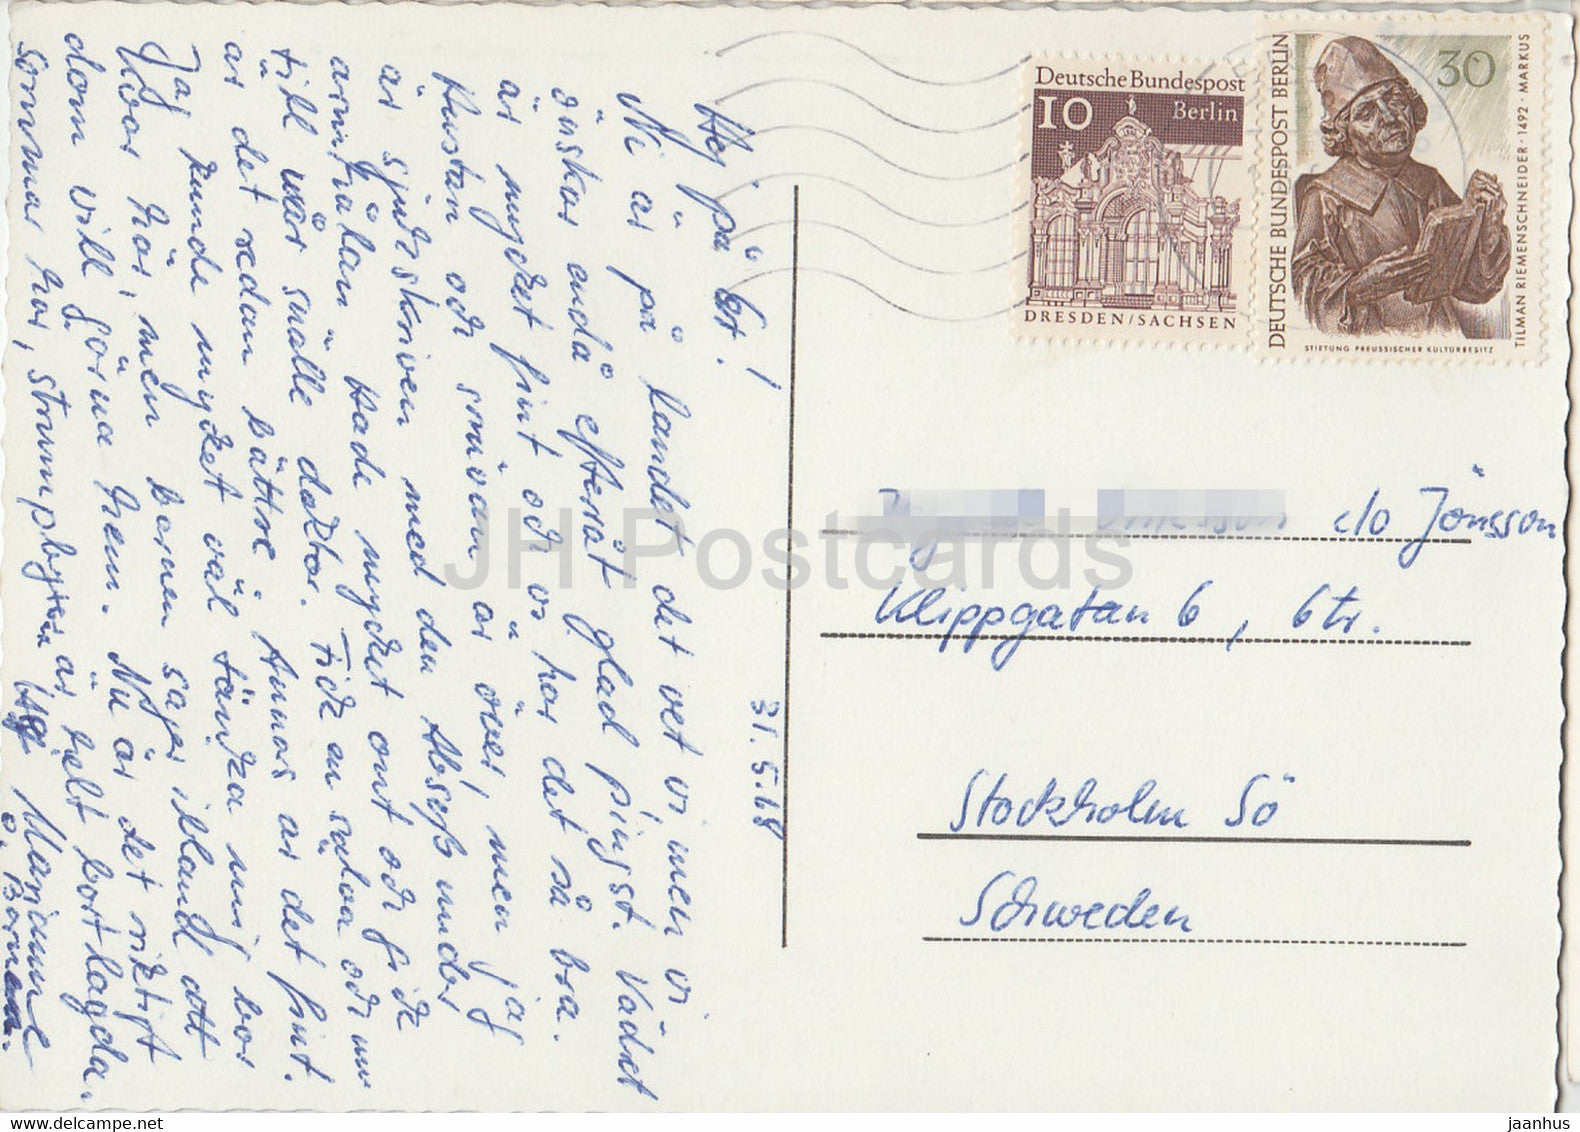 Hej på Er!
Ni är på landet det vet vi men vi
önskar ändå efteråt glad pingst. Vädret
är mycket fint och vi har det så bra.
Hustan och snuvan är över, men jag
är sjukskriven med den Abszeß under
armhålan. Hade mycket ont och gick
till vår snälle doktor. Fick en salva och nu
är det redan bättre. Annars är det fint.
Jag kunde mycket väl tänka mig bo
kvar här, men barnen säger ibland att
dom vill gärna hem. Nu är det riktigt
sommar här, strumpbyxer är helt bortlagda.
Marianne
o. Barnen.
31.5.68
Deutsche Bundespost
10
Berlin
DRESDEN/SACHSEN
DEUTSCHE BUNDESPOST BERLIN
30
TILMAN RIEMENSCHNEIDER · 1492 · MARKUS
STIFTUNG PREUSSISCHER KULTURBESITZ
c/o Jönsson
Klippgatan 6, 6tr.
Stockholm Sö
Schweden
JH Postcards
delcampe.net
jaanhus